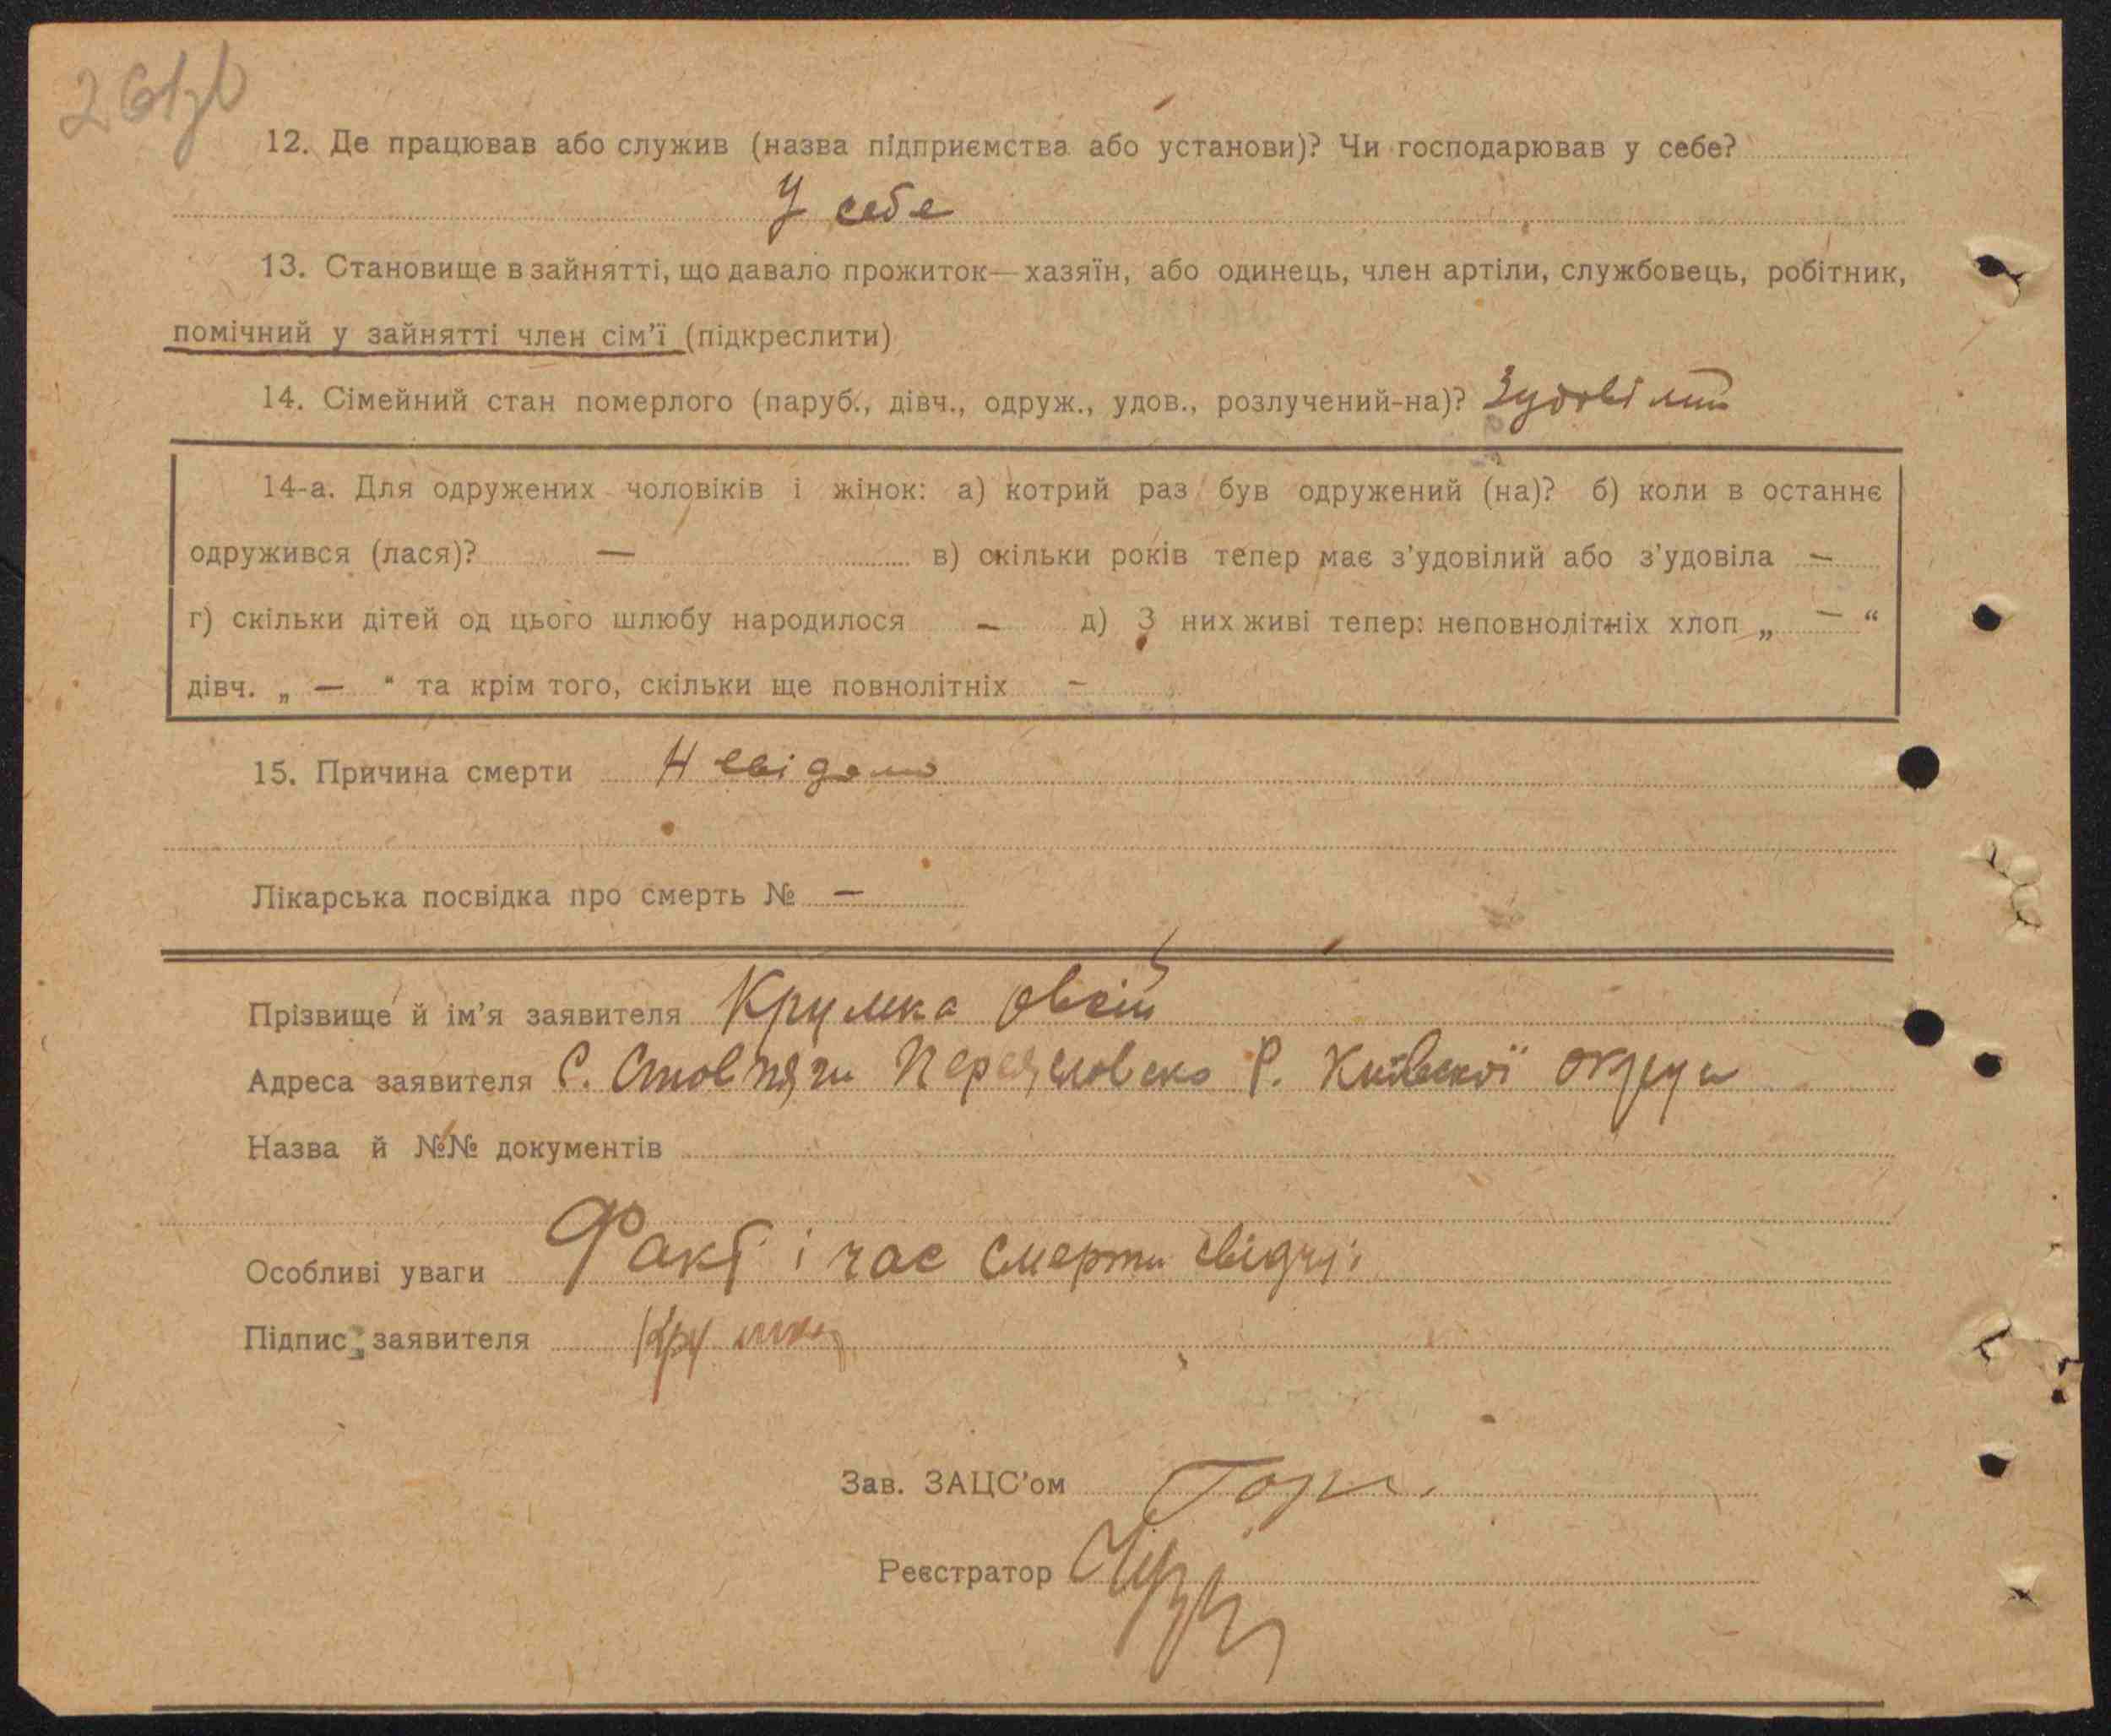 12. Де працював або служив (назва підприємства або установи)? Чи господарював у себе?
У себе
13. Становище в зайнятті, що давало прожиток—хазяїн, або одинець, член артіли, службовець, робітник,
помічний у зайнятті член сім'ї (підкреслити)
14. Сімейний стан померлого (паруб., дівч., одруж., удов., розлучений-на)? Зудовілий
14-а. Для одружених чоловіків і жінок: а) котрий раз був одружений (на)? б) коли в останнє
одружився (лася)? — в) скільки років тепер має з'удовілий або з'удовіла —
г) скільки дітей од цього шлюбу народилося — д) З них живі тепер: неповнолітніх хлоп „ — “
дівч. „ — “ та крім того, скільки ще повнолітніх —
15. Причина смерти Невідомо
Лікарська посвідка про смерть № —
Прізвище й ім'я заявителя Крушка Овсій
Адреса заявителя С. Стовпяги Переяславсько Р. Київської округи
Назва й №№ документів
Особливі уваги Факт і час смерти свідчу:
Підпис заявителя Крушка
Зав. ЗАЦС'ом
Реєстратор